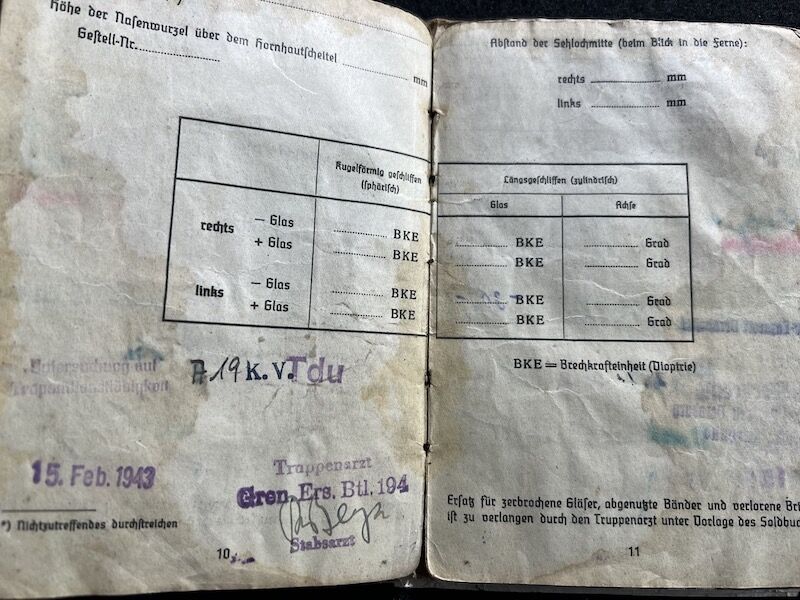 Höhe der Nasenwurzel über dem Hornhautscheitel ........ mm
Gestell-Nr. ........
Kugelförmig geschliffen
(sphärisch)
rechts
— Glas ........ BKE
+ Glas ........ BKE
links
— Glas ........ BKE
+ Glas ........ BKE
Untersuchung auf
Tropendienstfähigkeit
A 19 K.V. Tdu
15. Feb. 1943
Truppenarzt
Gren. Ers. Btl. 194
Stabsarzt
*) Nichtzutreffendes durchstreichen
10
Abstand der Sehlochmitte (beim Blick in die Ferne):
rechts ........ mm
links ........ mm
Längsgeschliffen (zylindrisch)
Glas
Achse
........ BKE ........ Grad
........ BKE ........ Grad
........ BKE ........ Grad
........ BKE ........ Grad
BKE = Brechkrafteinheit (Dioptrie)
Ersatz für zerbrochene Gläser, abgenutzte Bänder und verlorene Bri
ist zu verlangen durch den Truppenarzt unter Vorlage des Soldbuc
11